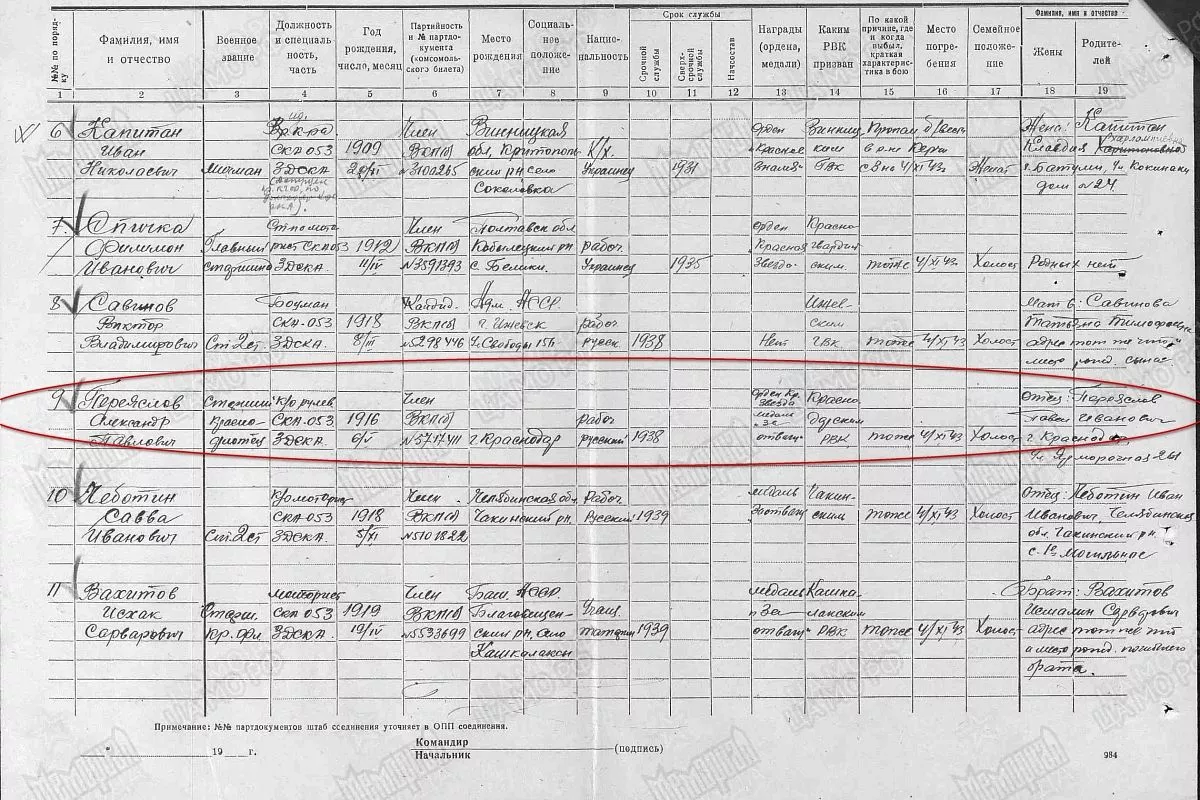 Срок службы
Фамилия, имя и отчество
№№ по порядку
Фамилия, имя и отчество
Военное звание
Должность и специальность, часть
Год рождения, число, месяц
Партийность и № партдокумента (комсомольского билета)
Место рождения
Социальное положение
Национальность
Срочной службы
Сверхсрочной службы
Начсостав
Награды (ордена, медали)
Каким РВК призван
По какой причине, где и когда выбыл. краткая характеристика в бою
Место погребения
Семейное положение
Жены
Родителей
1 2 3 4 5 6 7 8 9 10 11 12 13 14 15 16 17 18 19
6 Капитан Член Винницкая орден Винниц Пропал б/вести Жена: Капитан
Иван СКА 053 1909 ВКП(б) обл. Красное в р-не Керчи Клавдия
Николаевич Мичман ЗДСКА №3100265 село Украинец 1931 Знамя ГВК 4/XI 43 Женат г. Батуми,
Соколовка дом №24.
7 Спичка Член Полтавск обл. орден Красно
Филимон Главный СКА 053 1912 ВКП(б) Кобеляцкий рн рабоч Красная гвардей
Иванович старшина ЗДСКА 11/IV №3591393 с. Белики. Украинец 1935 Звезда ским. тоже 4/XI 43 Холост Родных нет
8 Савинов Боцман Кандид. Удм. АССР Ижев- Мать: Савинова
Виктор СКА-053 1918 ВКП(б) г. Ижевск рабоч ским Татьяна Тимофеевна
Владимирович Ст 2 ст ЗДСКА 8/III №5298446 русск. 1938 Нет ГВК тоже 4/XI 43 Холост адрес тот же что и
место рожд. сына
9 Переяслов Старший к/о рулев. Член Орден Кр. Звезда Красно Отец: Переяслов
Александр красно- СКА-053 1916 ВКП(б) рабоч медаль "За дарским Павел Иванович
Павлович флотец ЗДСКА 6/V №5717411 г. Краснодар русский 1938 отвагу" РВК тоже 4/XI 43 Холост г. Краснодар
10 Чеботин к/о моторист Член Челябинская обл. Рабоч медаль Чакин- Отец: Чеботин Иван
Савва СКА-053 1918 ВКП(б) Чакинский рн. Русский 1939 За отвагу ским тоже 4/XI 43 Холост Иванович, Челябинская
Иванович Ст. 2 ст ЗДСКА 5/XI №5101822 обл. Чакинский рн
с. Могильное
11 Вахитов моторист Член Баш. АССР медаль Кашка- Брат: Вахитов
Исхак Старш. СКА 053 1919 ВКП(б) Благовещен- "За лакским
Сарварович кр. фл. ЗДСКА 19/IV №5533699 ский рн, село татарин 1939 отвагу" РВК тоже 4/XI 43 Холост адрес тот же что
Кашкалаксы и место рожд. погибшего
брата.
Примечание: №№ партдокументов штаб соединения уточняет в ОПП соединения.
" " 19 г.
Командир
Начальник
(подпись)
984